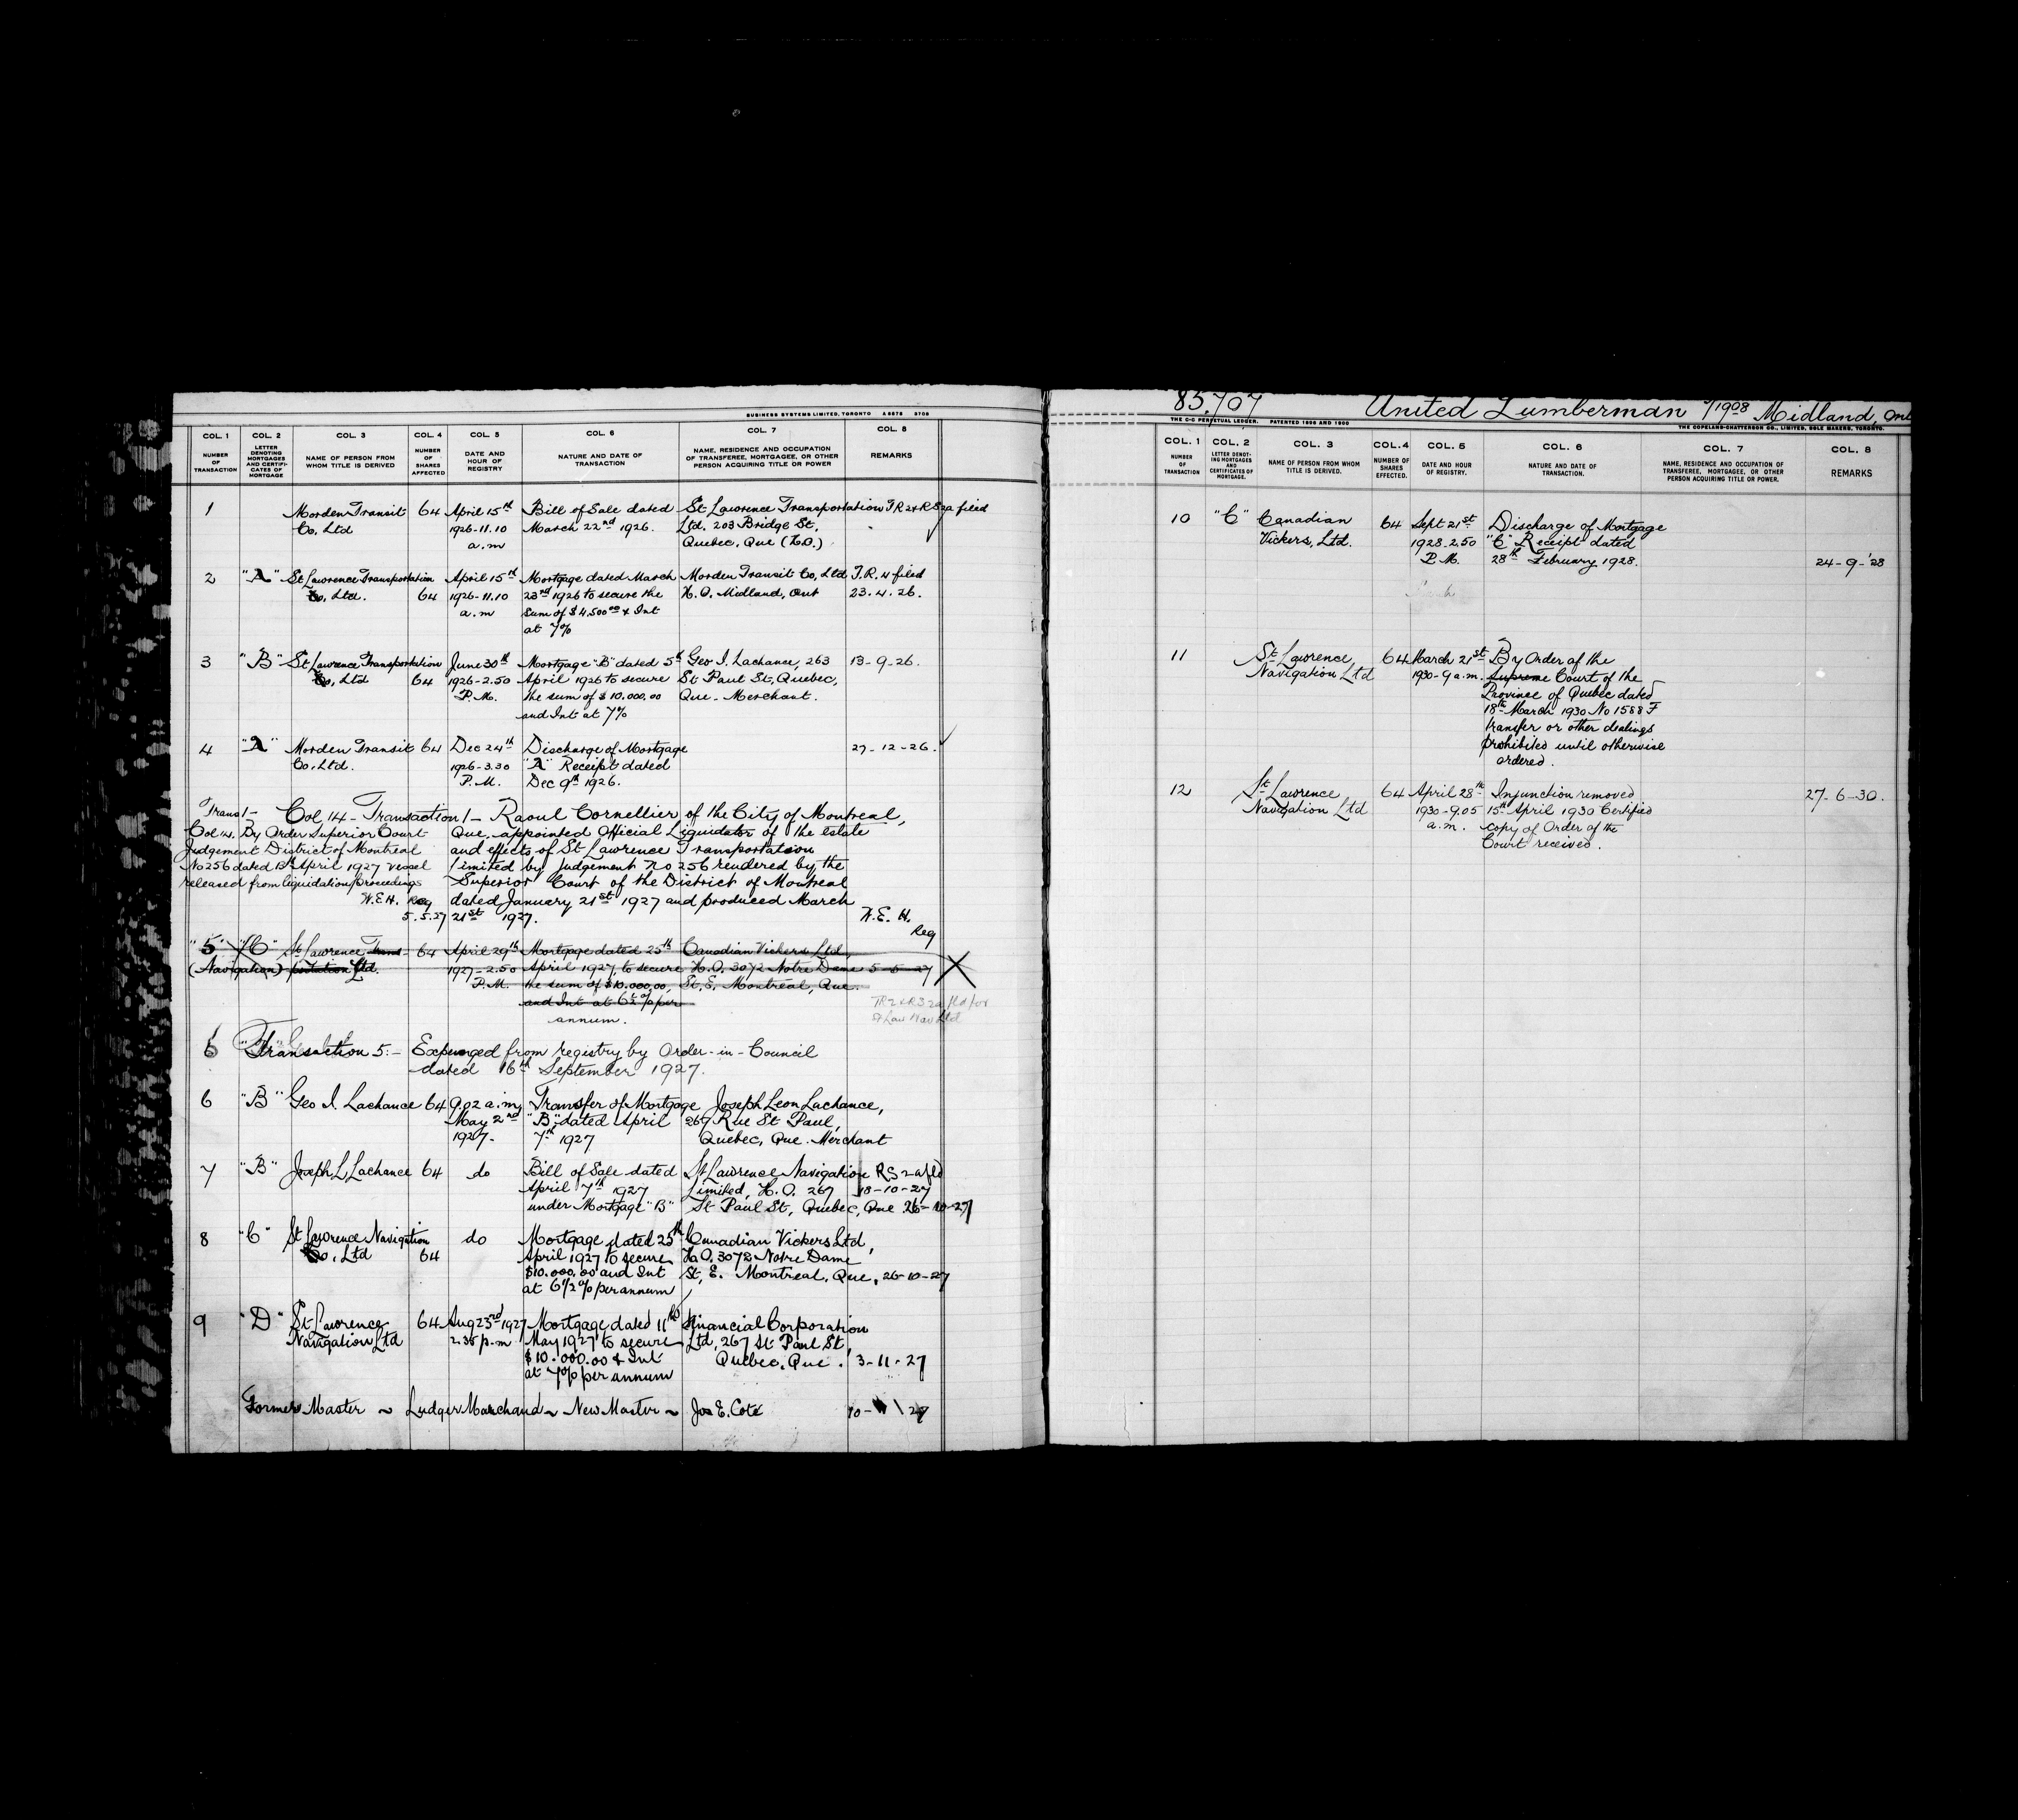 BUSINESS SYSTEMS LIMITED, TORONTO A 6675 3706
COL. 1 COL. 2 COL. 3 COL. 4 COL. 5 COL. 6 COL. 7 COL. 8
NUMBER OF TRANSACTION
LETTER DENOTING MORTGAGES AND CERTIFICATES OF MORTGAGE
NAME OF PERSON FROM WHOM TITLE IS DERIVED
NUMBER OF SHARES AFFECTED
DATE AND HOUR OF REGISTRY
NATURE AND DATE OF TRANSACTION
NAME, RESIDENCE AND OCCUPATION OF TRANSFEREE, MORTGAGEE, OR OTHER PERSON ACQUIRING TITLE OR POWER
REMARKS
1 Morden Transit 64 April 15th Bill of Sale dated St Lawrence Transportation T R 2 & R S 2a filed
Co, Ltd 1926-11.10 March 22nd 1926. Ltd. 203 Bridge St,
a.m Quebec, Que (H.O.)
2 "A" St Lawrence Transportation April 15th Mortgage dated March Morden Transit Co, Ltd T.R. 4 filed
Co, Ltd. 64 1926-11.10 23rd 1926 to secure the H.O. Midland, Ont 23.4.26.
a.m sum of $4,500.00 & Int
at 7%
3 "B" St Lawrence Transportation June 30th Mortgage "B" dated 5th Geo I. Lachance, 263 13-9-26.
Co, Ltd 64 1926-2.50 April 1926 to secure St Paul St, Quebec,
P.M. the sum of $10.000,00 Que - Merchant.
and Int at 7%
4 "A" Morden Transit 64 Dec 24th Discharge of Mortgage 27-12-26.
Co, Ltd. 1926-3.30 "A" Receipt dated
P.M. Dec 9th 1926.
Trans 1- Col, 14 - Transaction 1 - Raoul Cornellier of the City of Montreal,
Col 14. By Order Superior Court Que, appointed Official Liquidator of the estate
Judgement District of Montreal and effects of St Lawrence Transportation
No 256 dated 13th April 1927 vessel Limited by Judgement No 256 rendered by the
released from liquidation proceedings Superior Court of the District of Montreal
H.E.H. Reg dated January 21st 1927 and produced March
5.5.27 21st 1927. H.E.H.
Reg
"5" "C" St Lawrence Trans 64 April 29th Mortgage dated 25th Canadian Vickers Ltd,
(Navigation) portation Ltd. 1927-2.50 April 1927, to secure H.O. 3072 Notre Dame 5-5-27
P.M. the sum of $10.000,00, St, E, Montreal, Que.
and Int at 6½% per
annum.
TR 2 & RS 2a fld for
St Law Nav Ltd
6 "Transaction 5:- Expunged from registry by Order-in-Council
dated 16th September 1927.
6 "B" Geo I. Lachance 64 9.02 a.m, Transfer of Mortgage Joseph Leon Lachance,
May 2nd "B" dated April 267 Rue St Paul,
1927- 7th 1927 Quebec, Que. Merchant
7 "B" Joseph L, Lachance 64 do Bill of Sale dated St Lawrence Navigation RS 2a fld
April 7th 1927 Limited, H.O. 267 18-10-27
under Mortgage "B" St Paul St, Quebec, Que 26-10-27
8 "C" St Lawrence Navigation do Mortgage dated 25th Canadian Vickers Ltd,
Co, Ltd 64 April 1927 to secure H.O. 3072 Notre Dame
$10.000,00 and Int St, E. Montreal, Que, 26-10-27
at 6½% per annum
9 "D" St Lawrence 64 Aug 23rd 1927 Mortgage dated 11th Financial Corporation
Navigation Ltd 2.35 p.m May 1927 to secure Ltd, 267 St Paul St,
$10.000.00 & Int Quebec, Que. 3-11-27
at 7% per annum
Former Master ~ Ludger Marchand ~ New Master ~ Jos E. Coté
83,707 United Lumberman 7/1908 Midland, Ont
THE C-C PERPETUAL LEDGER. PATENTED 1896 AND 1900 THE COPELAND-CHATTERSON CO., LIMITED, SOLE MAKERS, TORONTO.
COL. 1 COL. 2 COL. 3 COL. 4 COL. 5 COL. 6 COL. 7 COL. 8
NUMBER OF TRANSACTION
LETTER DENOTING MORTGAGES AND CERTIFICATES OF MORTGAGE.
NAME OF PERSON FROM WHOM TITLE IS DERIVED.
NUMBER OF SHARES EFFECTED.
DATE AND HOUR OF REGISTRY.
NATURE AND DATE OF TRANSACTION.
NAME, RESIDENCE AND OCCUPATION OF TRANSFEREE, MORTGAGEE, OR OTHER PERSON ACQUIRING TITLE OR POWER.
REMARKS
10 "C" Canadian 64 Sept 21st Discharge of Mortgage
Vickers, Ltd. 1928-2.50 "C" Receipt dated
P.M. 28th February 1928. 24-9-'28
11 St Lawrence 64 March 21st By Order of the
Navigation Ltd 1930-9 a.m. Supreme Court of the
Province of Quebec dated
18th March 1930 No 1588 F
transfer or other dealings
prohibited until otherwise
ordered.
12 St Lawrence 64 April 28th Injunction removed 27-6-30.
Navigation Ltd 1930-9.05 15th April 1930 Certified
a.m. copy of Order of the
Court received.